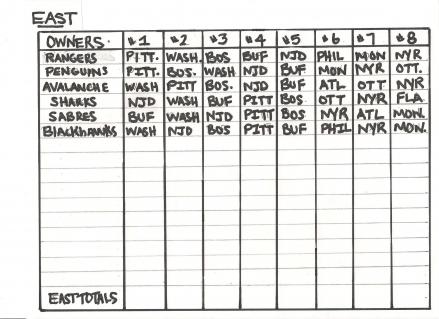 EAST
OWNERS. #1 #2 #3 #4 #5 #6 #7 #8
RANGERS PITT. WASH. BOS BUF NJD PHIL MON NYR
PENGUINS PITT. BOS. WASH NJD BUF MON NYR OTT.
AVALANCHE WASH PITT BOS. NJD BUF ATL OTT NYR
SHARKS NJD WASH BUF PITT BOS OTT NYR FLA
SABRES BUF WASH NJD PITT BOS NYR ATL MON.
BlackhawKs WASH NJD BOS PITT BUF PHIL NYR MON.
EAST TOTALS